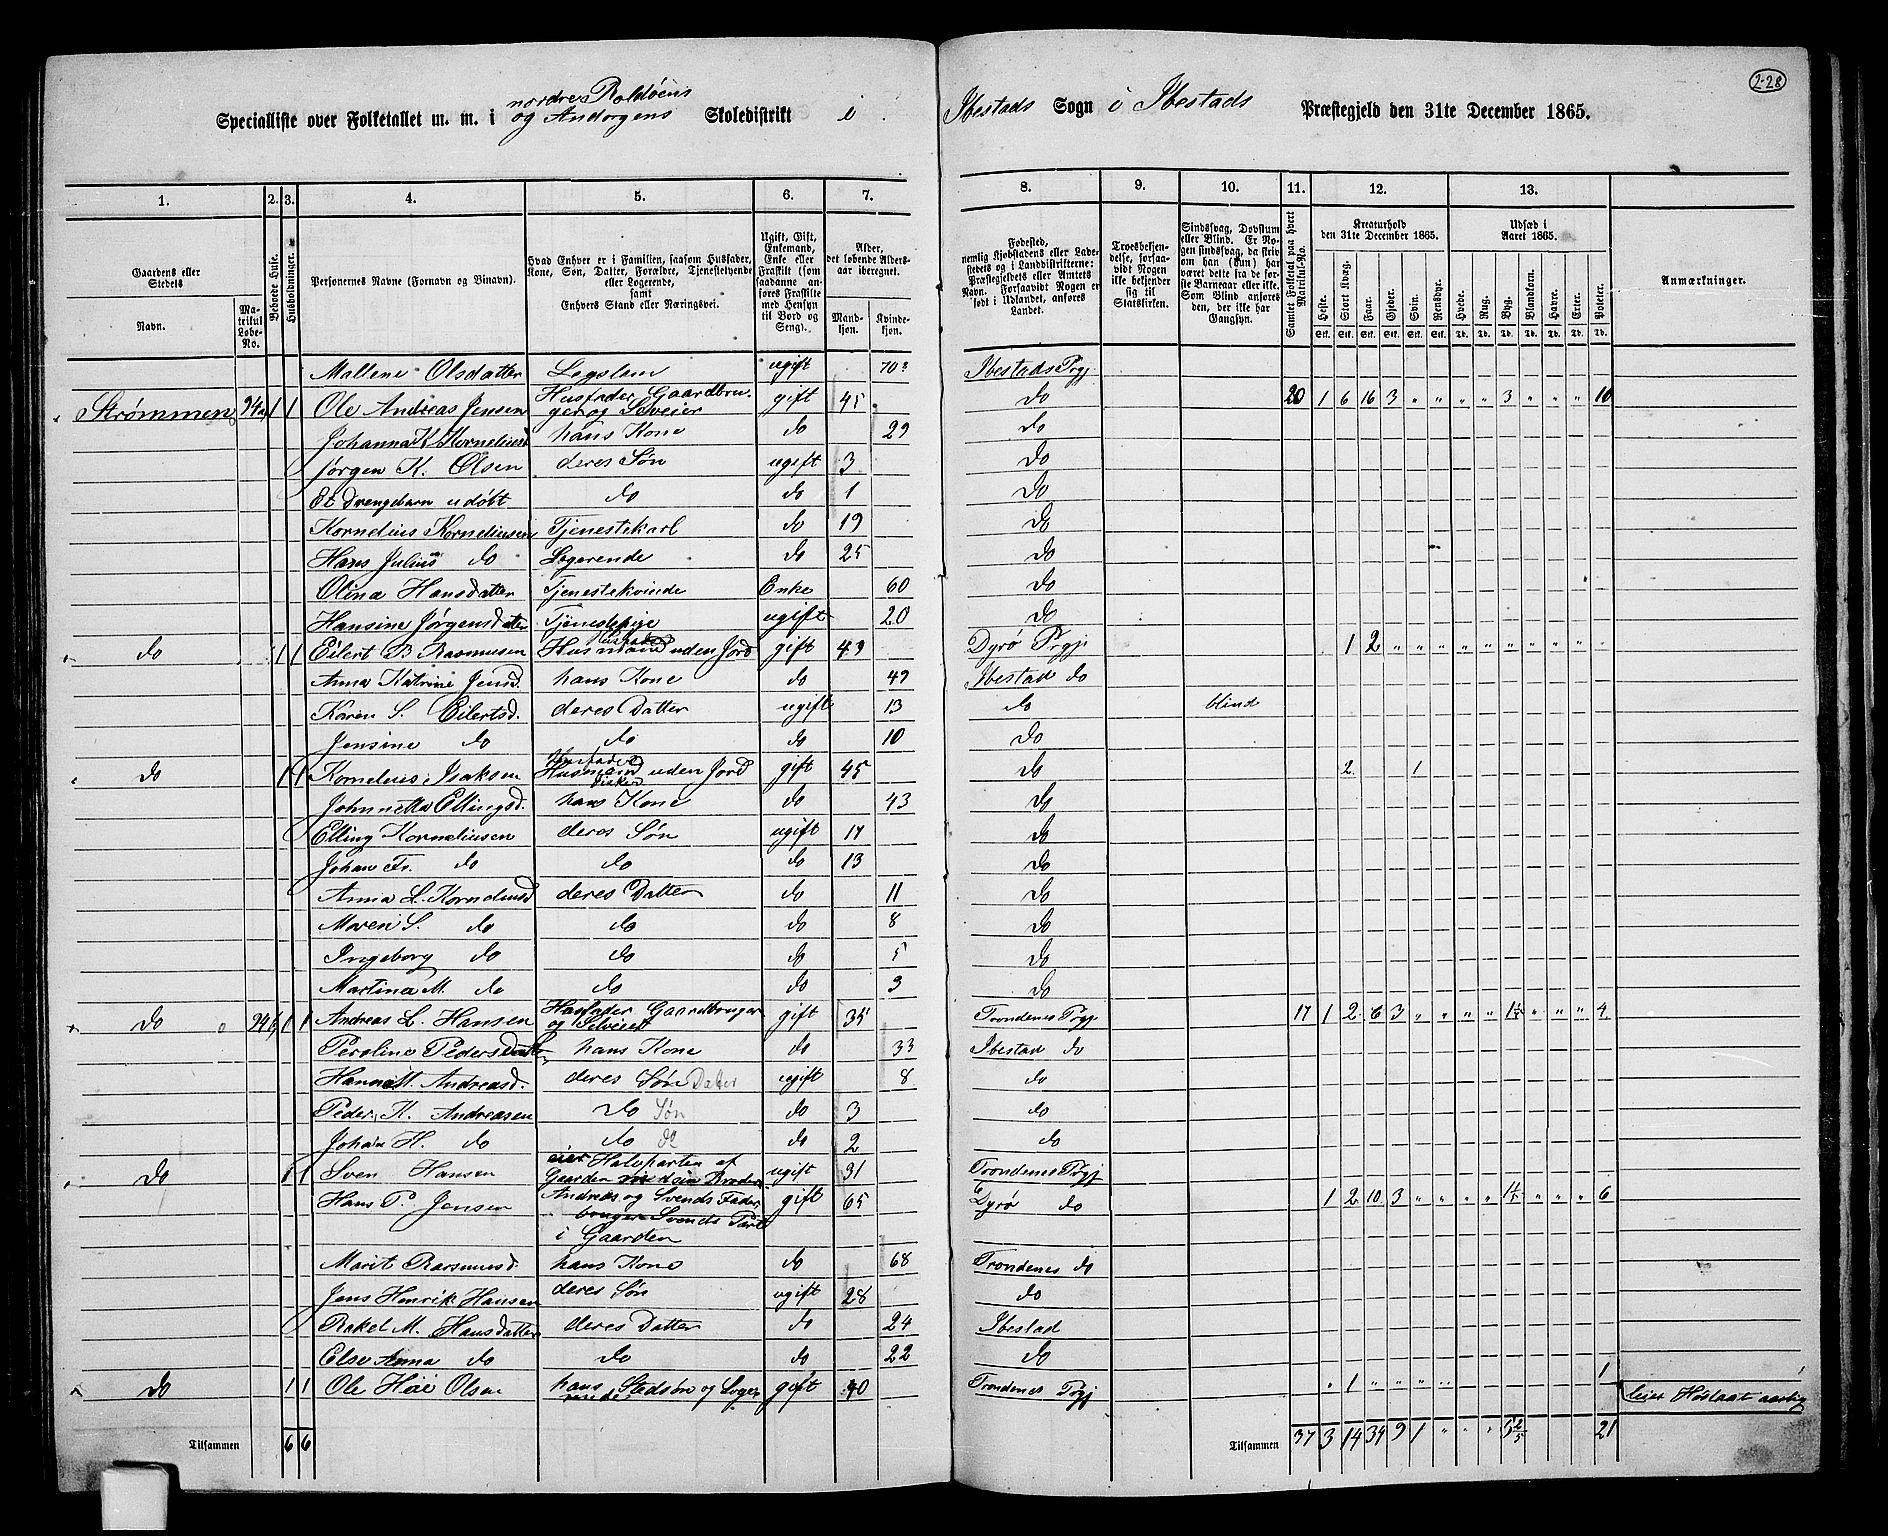 2-28
Specialliste over Folketallet m. m. i nordre Roldøens og Andorgens Skoledistrikt i Ibestads Sogn i Ibestads Præstegjeld den 31te December 1865.
1. 2. 3. 4. 5. 6. 7. 8. 9. 10. 11. 12. 13.
Gaardens eller Stedets
Navn.
Matrikul Løbe-No.
Beboede Huse.
Husholdninger.
Personernes Navne (Fornavn og Binavn).
Hvad Enhver er i Familien, saasom Husfader, Kone, Søn, Datter, Forældre, Tjenestetyende eller Logerende, samt Enhvers Stand eller Næringsvei.
Ugift, Gift, Enkemand, Enke eller Fraskilt (som saadanne anføres Fraskilte med Hensyn til Bord og Seng).
Alder, det løbende Alders-aar iberegnet.
Mandkjøn. Kvindekjøn.
Fødested, nemlig Kjøbstadens eller Ladestedets og i Landdistrikterne: Præstegjeldets eller Amtets Navn. Forsaavidt Nogen er født i Udlandet, anføres Landet.
Troesbekjendelse, forsaavidt Nogen ikke bekjender sig til Statskirken.
Sindssvag, Døvstum eller Blind. Er Nogen sindssvag, da skriv om han (hun) har været dette fra de første Barneaar eller ikke. Som Blind anføres den, der ikke har Gangsyn.
Samlet Folketal paa hvert Matrikul-No.
Kreaturhold den 31te December 1865.
Heste. Stort Kvæg. Faar. Gjeder. Svin. Rensdyr.
Udsæd i Aaret 1865.
Hvede. Rug. Byg. Blandkorn. Havre. Erter. Poteter.
Anmærkninger.
Mallene Olsdatter Legslem ugift 70 Ibestads Prgj
Strømmen 94a 1 1 Ole Andreas Jensen Husfader Gaardbruger og Selveier gift 45 do 20 1 6 16 3 " " " " 3 " " " 10
Johanna K. Kornelius hans Kone do 29 do
Jørgen K. Olsen deres Søn ugift 3 do
Et Drengebarn udøbt do do 1 do
Kornelius Korneliusen Tjenestekarl do 19 do
Hans Julius do Logerende do 25 do
Olina Hansdatter Tjenestekvinde Enke 60 do
Hansine Jørgensdatter Tjenestepige ugift 20 do
do 1 1 Eilert B. Rasmusen Husfader Husmand uden Jord gift 49 Dyrø Prgj 1 2 " " " " " " " " "
Anna Katrine Jensd. hans Kone do 49 Ibestad do
Karen S. Eilertsd. deres Datter ugift 13 do blind
Jensine do do do 10 do
do 1 1 Kornelius Isaksen Husfader Husmand uden Jord Fisker gift 45 do 2 1
Johnnetta Ellingsd. hans Kone do 43 do
Elling Korneliusen deres Søn ugift 17 do
Johan Fr. do do do 13 do
Anna L. Korneliusd deres Datter do 11 do
Maren S. do do do 8 do
Ingeborg do do do 5 do
Martina M. do do do 3 do
do 94b 1 1 Andreas L. Hansen Husfader Gaardbruger og Selveier gift 35 Trondenes Prgj 17 1 2 6 3 " " " " 1½ " " " 4
Peroline Pedersdatter hans Kone do 33 Ibestad do
Hanna M. Andreasd. deres Søn Datter ugift 8 do
Peder K. Andreasen do Søn do 3 do
Johan H. do do do do 2 do
do 1 1 Sven Hansen eier Halvparten af Gaarden med sin Broder ugift 31 Trondenes Prgj
Hans P. Jensen Andreas og Svends Fader gift 65 Dyrø do 1 2 10 3 " " " " " " " 6
bruger Svends Part
i Gaarden
Marit Rasmusd. hans Kone do 68 Trondenes do
Jens Henrik Hansen deres Søn ugift 28 do
Rakel M. Hansdatter deres Datter do 24 Ibestad
Else Anna do do do 22 do
do 1 1 Ole Høie Olsen hans Stedsøn og Logerende gift 40 Trondenes Prgj " 1 " " " " 1 leier Høslaat aarlig
Tilsammen 6 6 Tilsammen 37 3 14 34 9 1 " " " 5⅖ 21